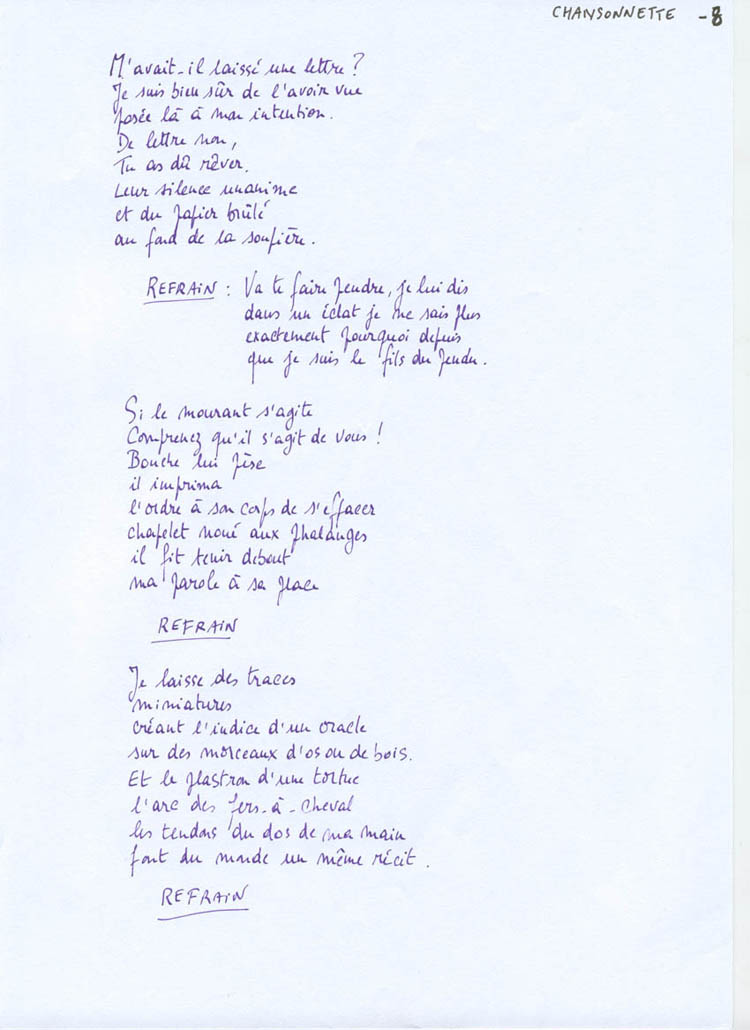 CHANSONNETTE - 8
M'avait-il laissé une lettre ?
Je suis bien sûr de l'avoir vue
posée là à mon intention.
De lettre non,
Tu as dû rêver.
Leur silence unanime
et du papier brûlé
au fond de la soupière.
REFRAIN : Va te faire pendre, je lui dis
dans un éclat je ne sais plus
exactement pourquoi depuis
que je suis le fils du pendu.
Si le mourant s'agite
Comprenez qu'il s'agit de vous !
Bouche lui pèse
il imprima
l'ordre à son corps de s'effacer
chapelet noué aux phalanges
il fit tenir debout
ma parole à sa place
REFRAIN
Je laisse des traces
miniatures
créant l'indice d'un oracle
sur des morceaux d'os ou de bois.
Et le plastron d'une tortue
l'arc des fers-à-cheval
les tendons du dos de ma main
font du monde un même récit.
REFRAIN